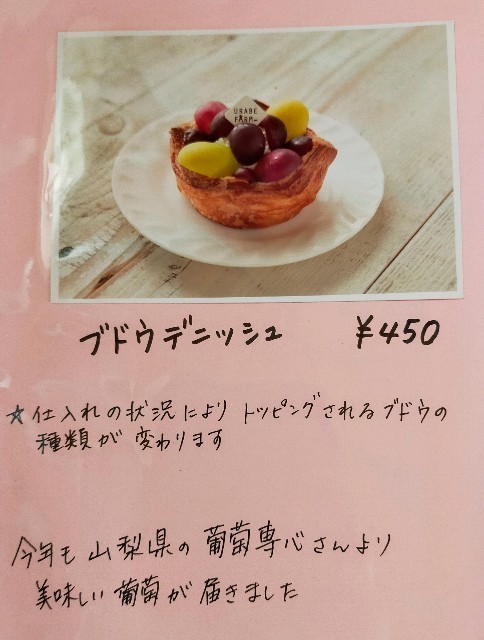 URABE
FARM
ブドウデニッシュ ¥450
☆仕入れの状況により トッピングされるブドウの
種類が 変わります
今年も 山梨県の 葡萄専心さんより
美味しい 葡萄が 届きました